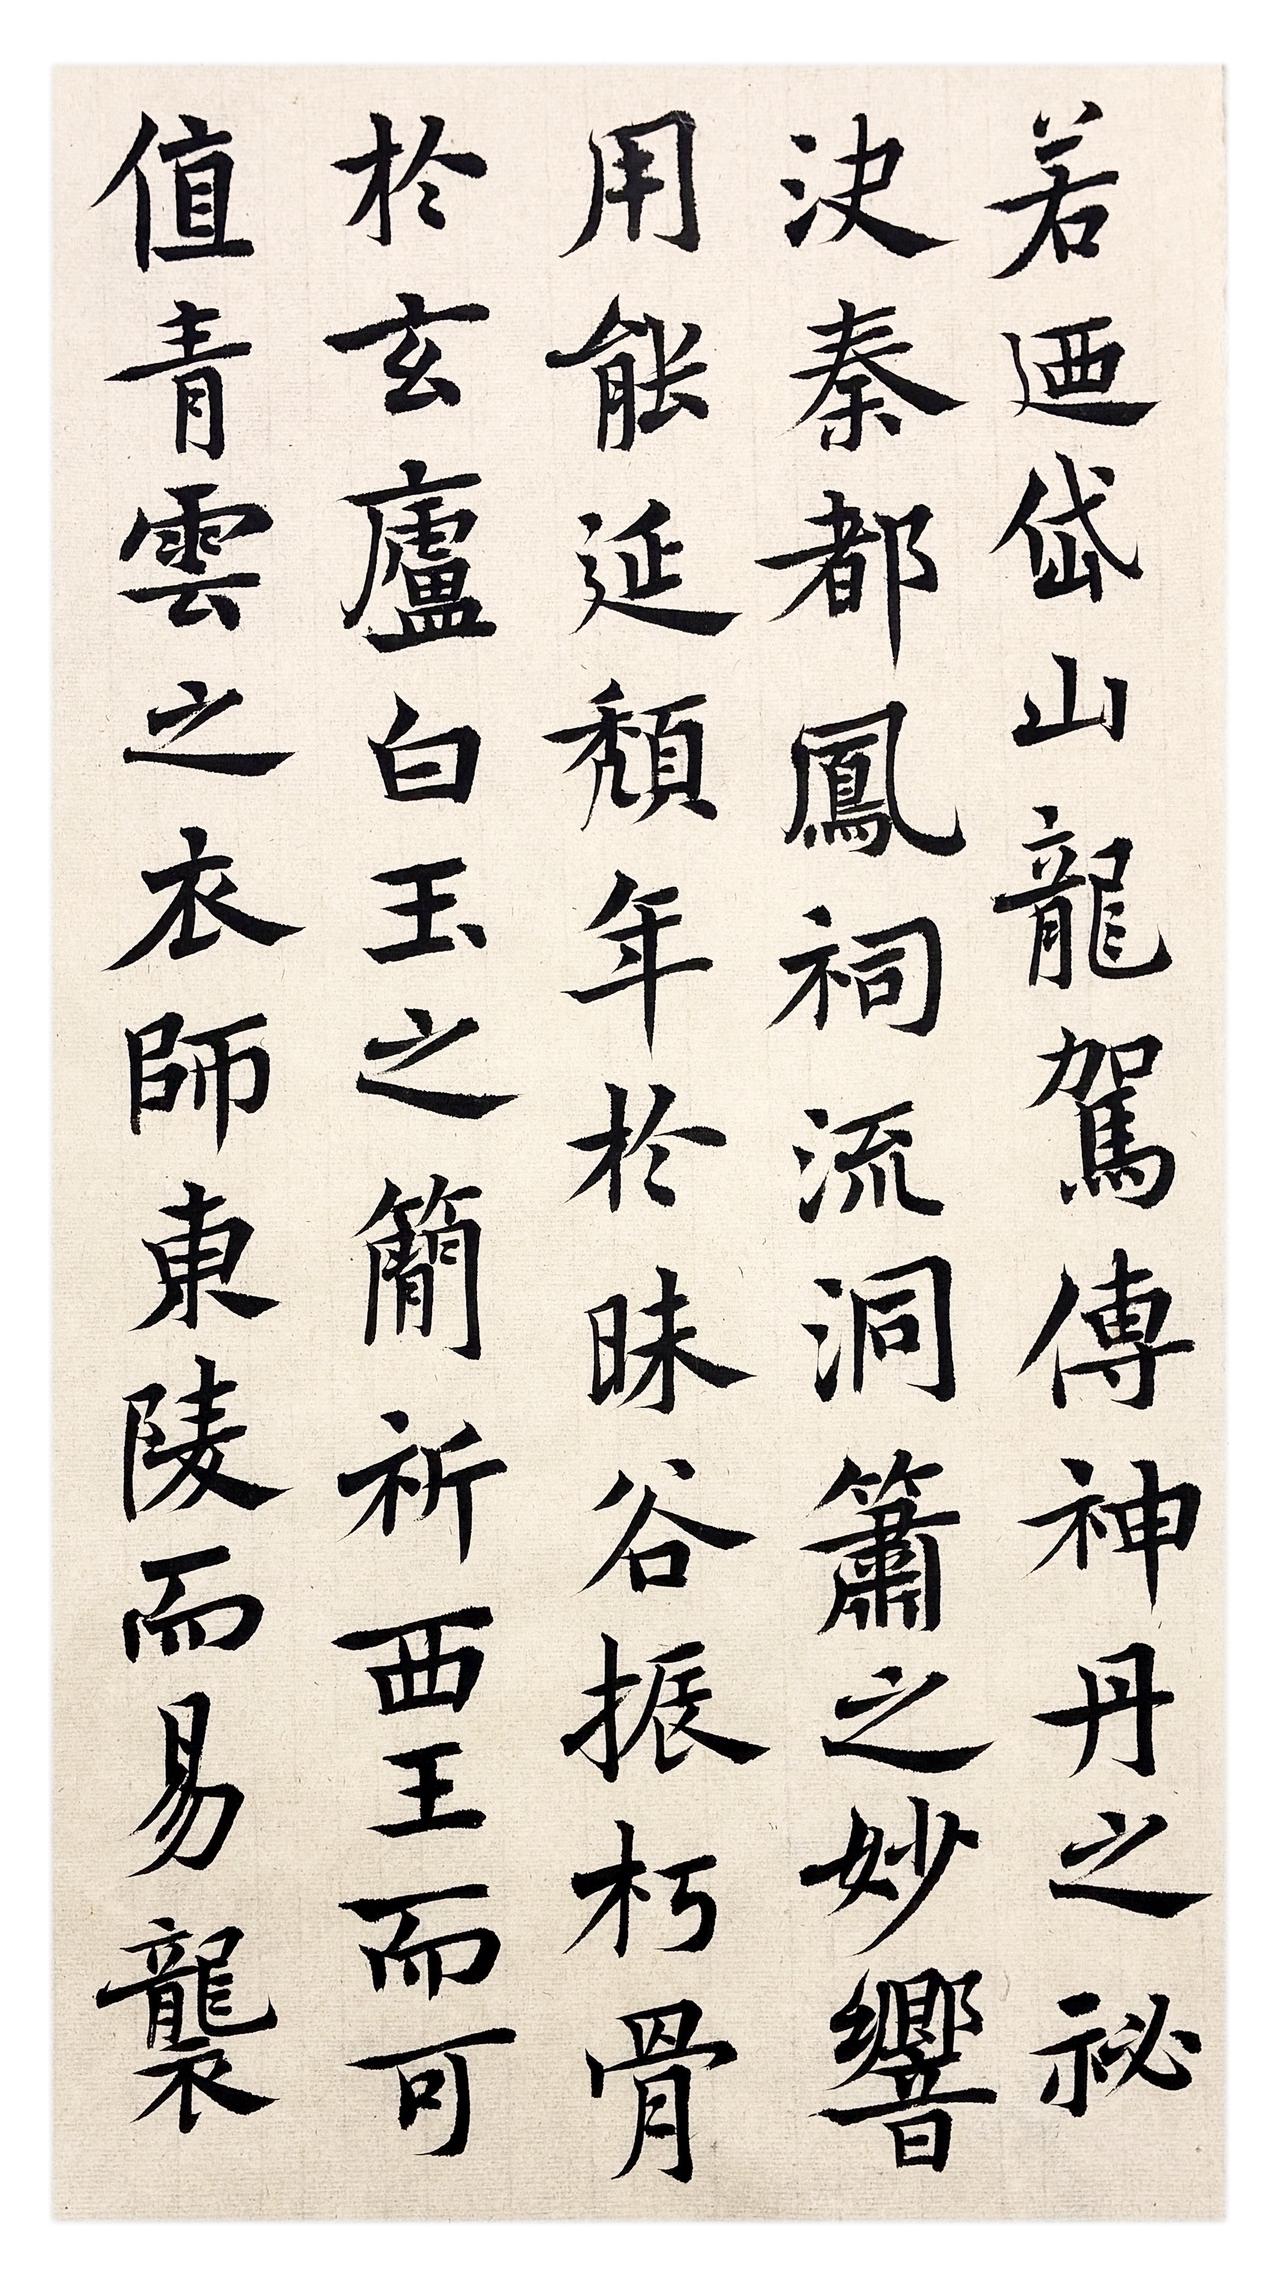 若迺岱山龍駕傳神丹之祕
決秦都鳳祠流洞簫之妙響
用能延頹年於昧谷振朽骨
於玄廬白玉之簡祈西王而可
值青雲之衣師東陵而易襲